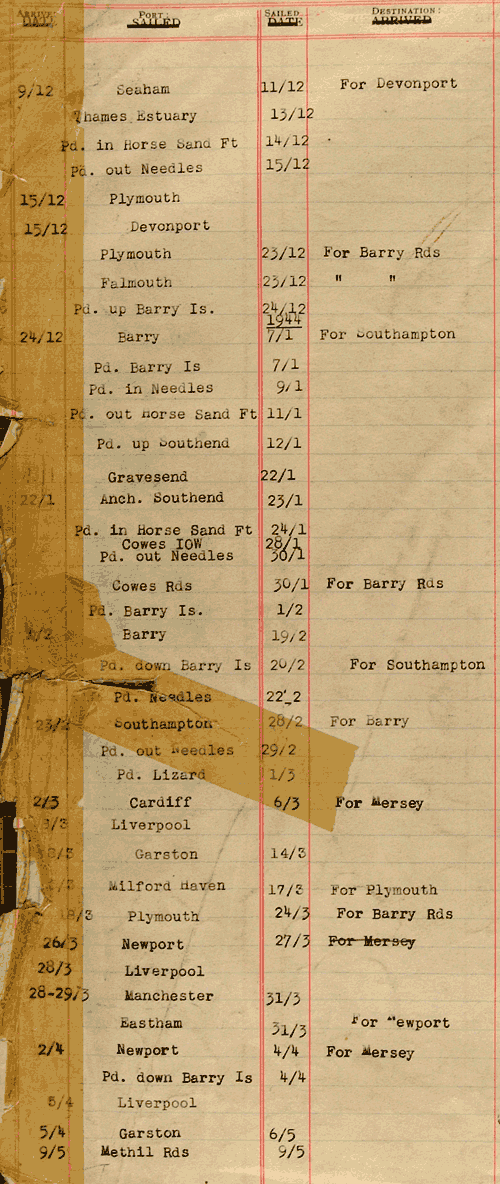 ARRIVED DATE PORT: SAILED SAILED DATE DESTINATION: ARRIVED
9/12 Seaham 11/12 For Devonport
Thames Estuary 13/12
Pd. in Horse Sand Ft 14/12
Pd. out Needles 15/12
15/12 Plymouth
15/12 Devonport
Plymouth 23/12 For Barry Rds
Falmouth 23/12 " "
Pd. up Barry Is. 24/12
1944
24/12 Barry 7/1 For Southampton
Pd. Barry Is 7/1
Pd. in Needles 9/1
Pd. out Horse Sand Ft 11/1
Pd. up Southend 12/1
Gravesend 22/1
22/1 Anch. Southend 23/1
Pd. in Horse Sand Ft 24/1
Cowes IOW 28/1
Pd. out Needles 30/1
Cowes Rds 30/1 For Barry Rds
Pd. Barry Is. 1/2
1/2 Barry 19/2
Pd. down Barry Is 20/2 For Southampton
Pd. Needles 22/2
23/2 Southampton 28/2 For Barry
Pd. out Needles 29/2
Pd. Lizard 1/3
2/3 Cardiff 6/3 For Mersey
Liverpool
Garston 14/3
Milford Haven 17/3 For Plymouth
18/3 Plymouth 24/3 For Barry Rds
26/3 Newport 27/3 For Mersey
28/3 Liverpool
28-29/3 Manchester 31/3
Eastham 31/3 For Newport
2/4 Newport 4/4 For Mersey
Pd. down Barry Is 4/4
5/4 Liverpool
5/4 Garston 6/5
9/5 Methil Rds 9/5